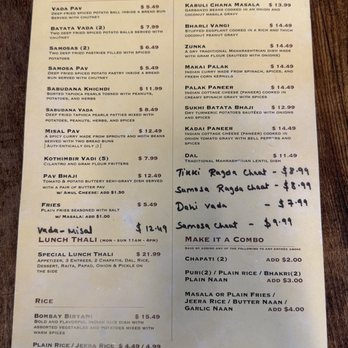 Vada Pav $ 5.49
Deep fried spiced potato ball inside a bread bun
served with chutney
Batata Vada (2) $ 7.99
Two deep fried spiced potato balls served with
chutney
Samosas (2) $ 6.49
Two deep fried pastries filled with spiced
potatoes
Samosa Pav $ 5.49
Deep fried spiced potato pastry inside a bread
bun served with chutney
Sabudana Khichdi $ 11.99
Sauted tapioca pearls tossed with peanuts,
potatoes, and herbs
Sabudana Vada $ 8.49
Deep fried tapioca pearls patties mixed with
potatoes, peanuts, herbs, and spices
Misal Pav $ 12.49
A spicy curry made from sprouts and moth beans
served with two bread buns
[Authentically Gluten-Free]
Kothimbir Vadi (5) $ 7.99
Cilantro and gram flour fritters
Pav Bhaji $ 12.49
Tomato & potato buttery semi-gravy dish served
with a pair of butter pav
w/ Amul Cheese: Add $1.50
Fries $ 5.49
Plain fries seasoned with salt
w/ Masala: add $1.00
Vada-Misal $ 12.49
Lunch Thali (Mon - Sun 11am - 4pm)
Special Lunch Thali $ 21.99
Appetizer, 3 Entrees, 2 Chapatis, Dal, Rice,
Dessert, Raita, Papad, Onion & Pickle on
the side
Rice
Bombay Biryani $ 15.49
Bold and flavorful Indian rice dish with
assorted vegetables and potatoes mixed with
warm spices
Plain Rice / Jeera Rice $ 4.49 / 4.99
Kabuli Chana Masala $ 13.99
Garbanzo beans cooked in an onion and
coconut masala gravy
Bharli Vangi $ 14.49
Stuffed eggplant cooked in a rich and thick
coconut peanut gravy
Zunka $ 14.49
A dry traditional Maharashtrian dish made
with gram flour (sauted with onions)
Makai Palak $ 14.49
Indian curry made from spinach, spices, and fresh
corn kernels
Palak Paneer $ 14.49
Indian cottage cheese (paneer) cooked in
creamy spinach gravy with spices
Sukhi Batata Bhaji $ 12.99
Dry turmeric potatoes sauted with onions and
spices
Kadai Paneer $ 14.49
Indian cottage cheese (paneer) cooked in
tomato onion gravy with bell peppers and
spices
Dal $ 11.49
Traditional Maharashtrian lentil dish
Tikki Ragda Chaat - $ 8.99
Samosa Ragda Chaat - $ 8.99
Dahi Vada - $ 7.99
Samosa Chaat - $ 9.99
Make it a Combo
Can be added to any of the following to any entree above
Chapati (2) add $2.00
Puri(2) / Plain rice / Bhakri(2)
Plain Naan add $3.00
Masala or Plain Fries /
Jeera Rice / Butter Naan /
Garlic Naan add $4.00